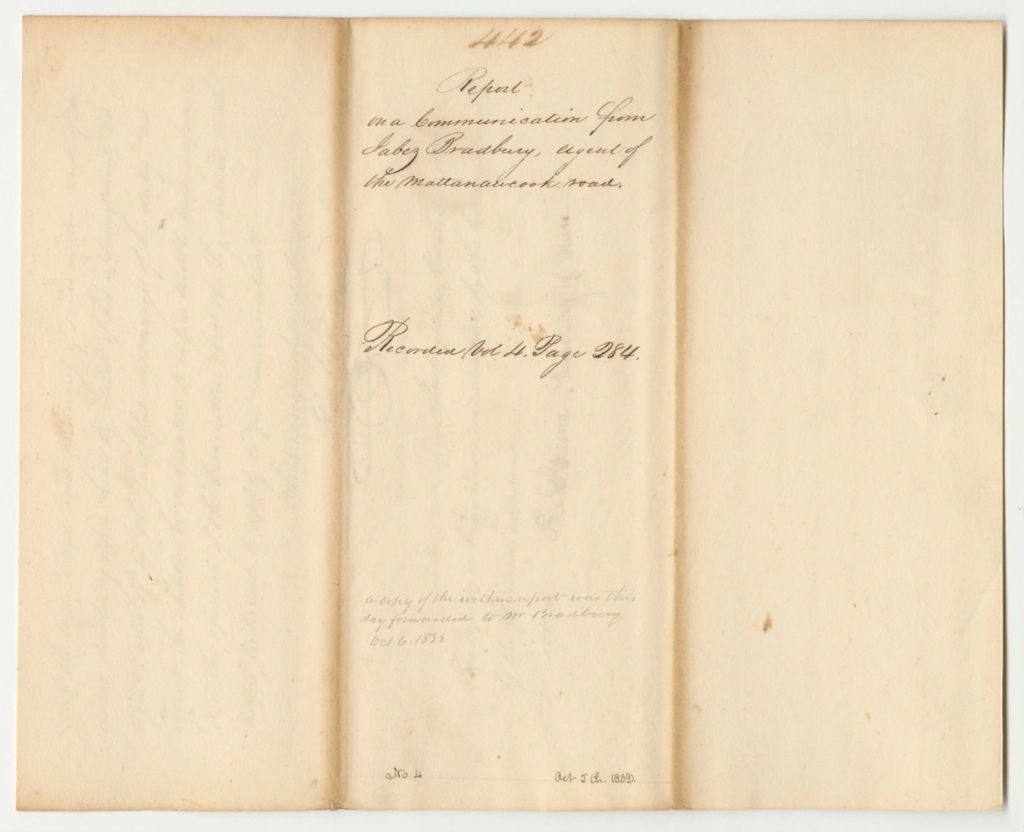 442
Report
on a Communication from
Jabez Bradbury, agent of
the Mattanawcook road.
Recorded Vol 4. Page 284.
a copy of the within report was this
day forwarded to Mr Bradbury
Oct 6. 1832
No. 4
Oct 5th. 1832.